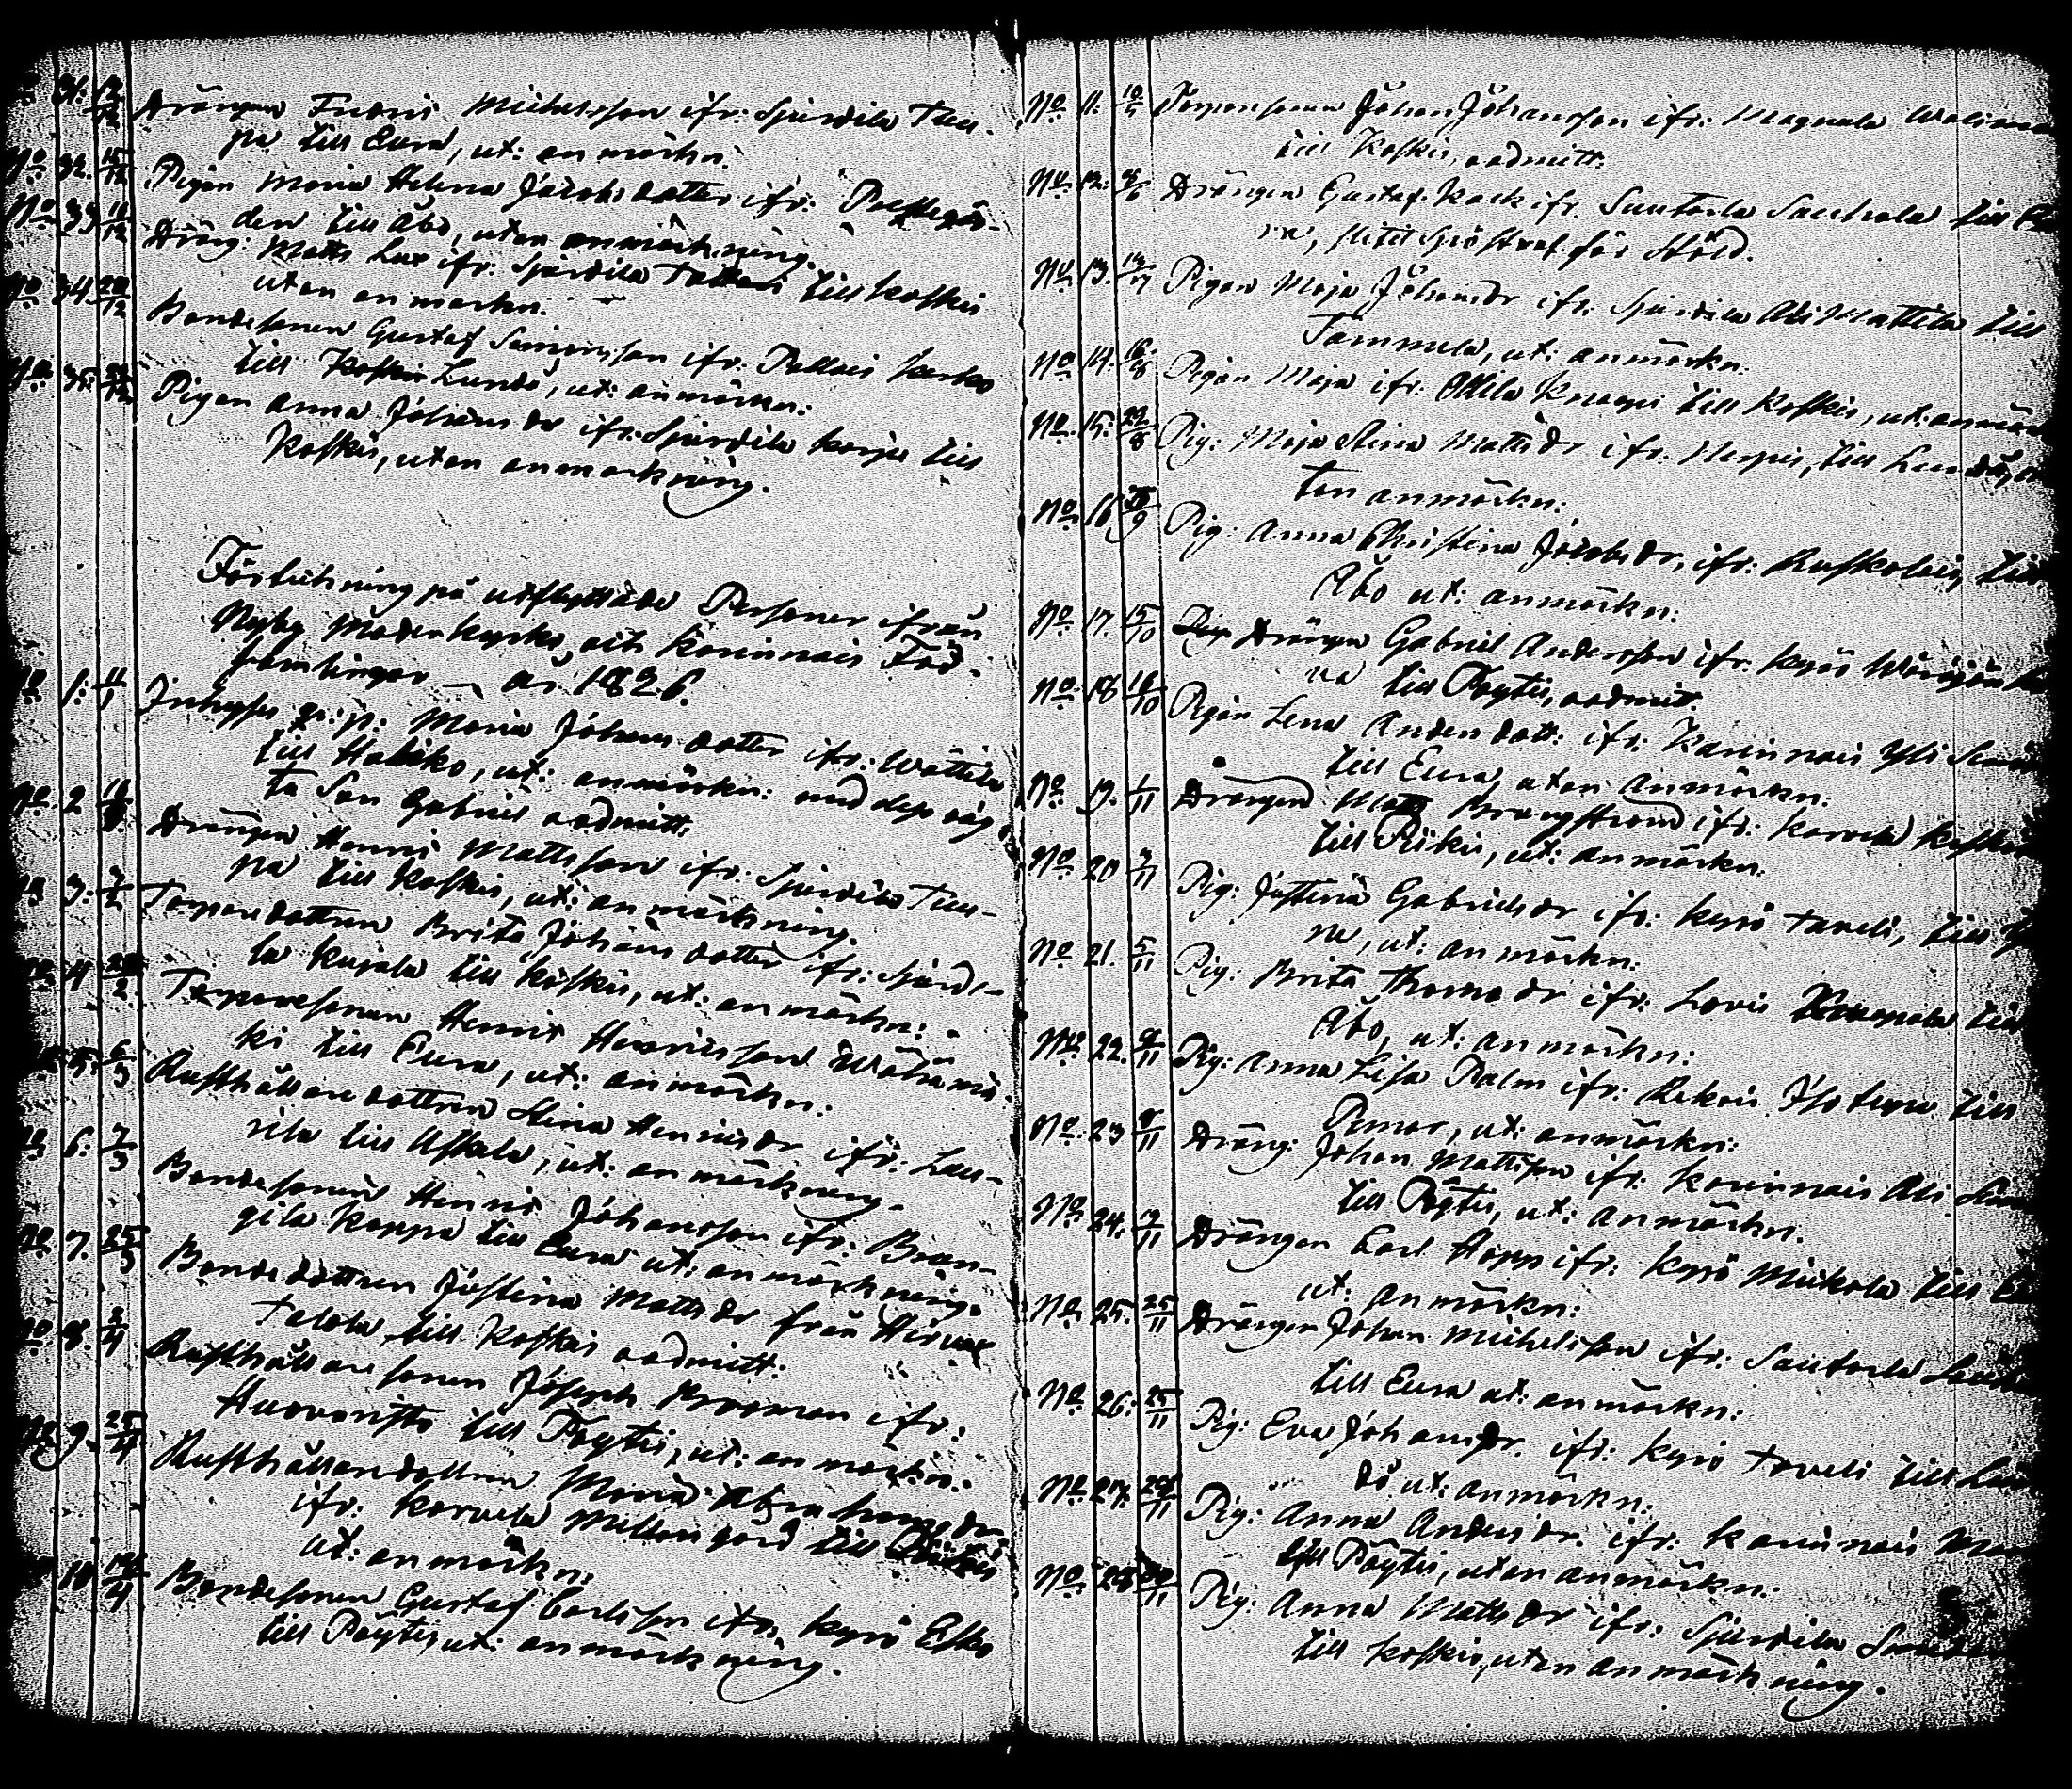 31. 12/12 Drängen Fredric Michelsson ifr: Sjurdila Tuu-
pa till Eura, ut: anmärkn.
No 32. 15/12 Pigan Maria Helena Jacobsdotter ifr: Prestegår-
den till Åbo, utan anmärkning.
No 33 18/12 Dräng: Matts Lux ifr: Sjurdila Tattari till Koskis
utan anmärkn:
No 34. 20/12 Bondesonen Gustaf Simonsson ifr: Pallais
till Lundo, ut: anmärkn:
No 35. Pigan Anna Johansdr ifr: Sjurdila Korpi till
Koskis, utan anmärkning.
Förtekning på utflyttade Personer ifrån
Nyby Moderkyrko, och Karinnais
församlingar år 1826.
No 1. 11/1 Inhyses qv: p: Maria Johansdotter ifr: Wättilä
till Halikko, ut: anmärkn: med dess oäg-
ta Son Gabriel oadmitt.
No 2 Drängen Henric Mattsson ifr: Sjurdila Tuu-
pa till Koskis, ut: anmärkning.
No 3. Torparedottren Brita Johansdotter ifr: Sjurdi-
la Kujala till Koskis, ut: anmärkn:
No 4 Torparesonen Henric Henricsson
ki till Eura, ut: anmärkn:
No 5. 6/3 Rusthållaredottren Stina Henricsdr ifr: Lau-
rila till Askala, ut: anmärkning.
No 6. 7/3 Bondesonen Henric Johansson ifr: Bran-
gila Kappa till Eura ut: anmärkning.
No 7. 25/3 Bondedottren Justina Mattsdr från Hirvas
Talola till Koskis oadmitt.
No 8. 2/4 Rusthållaresonen Joseph Krooman ifr:
till Pöytis, ut: anmärkn.
No 9. 25/4 Rusthållaredottren Maria Abrahamsdr
ifr: Karvela Mellangård till
ut: anmärkn:
10 Bondesonen Gustaf Carlsson ifr: Kyrö Esko
till Pöytis, ut: anmärkning.
No 11. 10/5 Torparesonen Johan Johansson ifr: Magnula
till Koskis, oadmitt.
No 12. Drängen Gustaf Kock ifr. Suutarla Sauhala till
ra, slitit spöstraf för stöld.
No 13. Pigan Maja Johansdr ifr: Sjurdila Ali Mattila till
Tammela, ut: anmärkn:
No 14. 16/8 Pigan Maja ifr: Ollila Knaapi till Koskis, ut: anmärk
No 15. 22/8 Pig: Maja Stina Mattsdr ifr: till Lundo, u
tan anmärkn:
No 16 Pig: Anna Christina Jacobsdr, ifr: till
Åbo ut: anmärkn:
No 17. 15/10 Drängen Gabriel Andersson ifr: Kyrö
till Pöytis, oadmit.
No 18 18/10 Pigan Lena Andersdott: ifr: Karinnais Yli
till Eura, utan anmärkn:
No 19. 1/11 Drängen Matts Brangström ifr: Karvela
till Piikis, ut: anmärkn:
No 20 Pig: Justina Gabrielsdr ifr: Kyrö Taveli, till
ne, ut: anmärkn:
No 21. 5/11 Pig: Brita Thomasdr ifr: Lovis till
Åbo, ut: anmärkn:
No 22. Pig: Anna Lisa Palm ifr: Rekois Isotupa till
Pemar, ut: anmärkn:
No 23 Dräng: Johan Mattsson ifr: Karinnais Ali
till Pöytis, ut: anmärkn.
No 24. Drängen Carl Hopp ifr: Kyrö Mickola till
ut: anmärkn:
No 25. 25/11 Drängen Johan Michelsson ifr: Suutarla
till Eura ut: anmärkn:
No 26. 25/11 Pig: Eva Johansdr. ifr: Kyrö Taveli till Lun
dö ut: anmärkn:
No 27. Pig: Anna Andersdr. ifr: Karinnais
till Pöytis, utan anmärkn:
No 28 Pig: Anna Mattsdr ifr: Sjurdila
till Koskis, utan anmärkning.